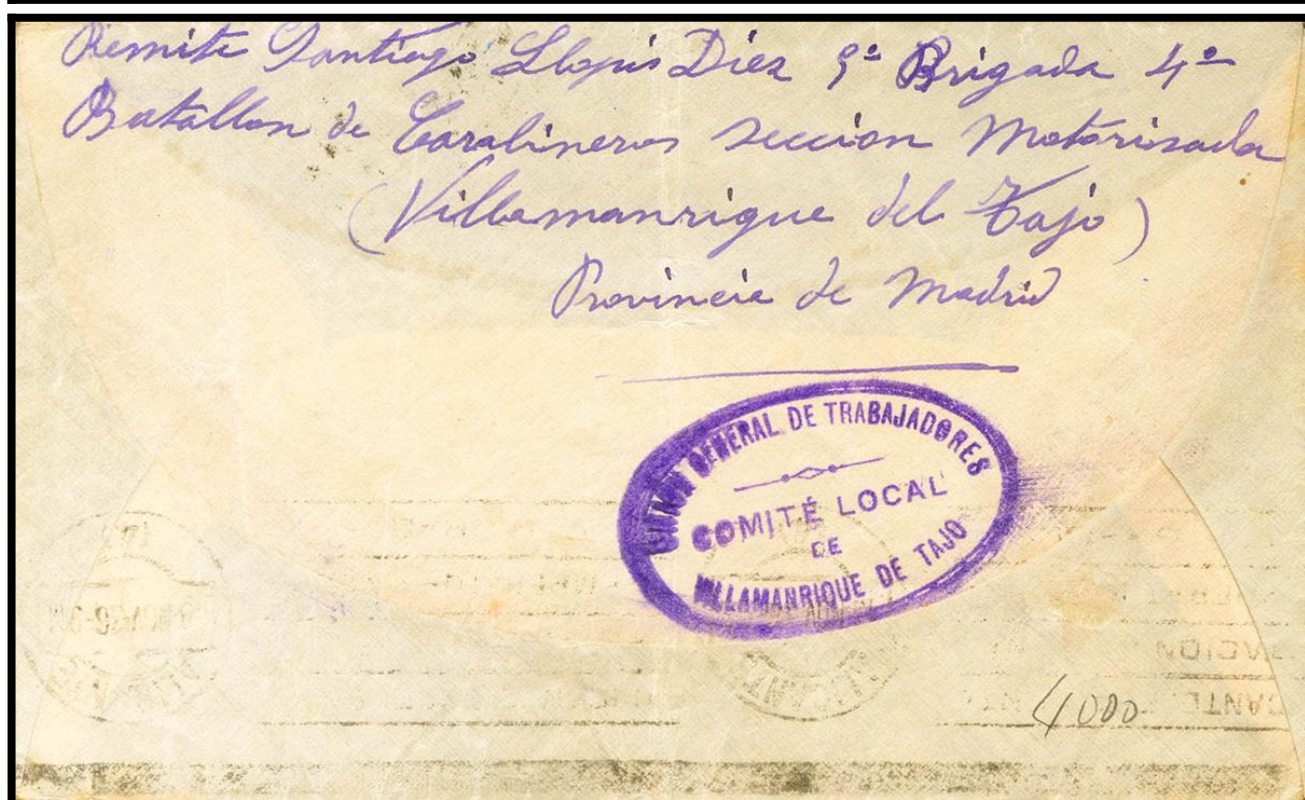 Remite Santiago Llopis Diez 9ª Brigada 4º
Batallon de Carabineros seccion Motorisada
(Villamanrique del Tajo)
Provincia de Madrid
UNION GENERAL DE TRABAJADORES
COMITÉ LOCAL
DE
VILLAMANRIQUE DE TAJO
4000